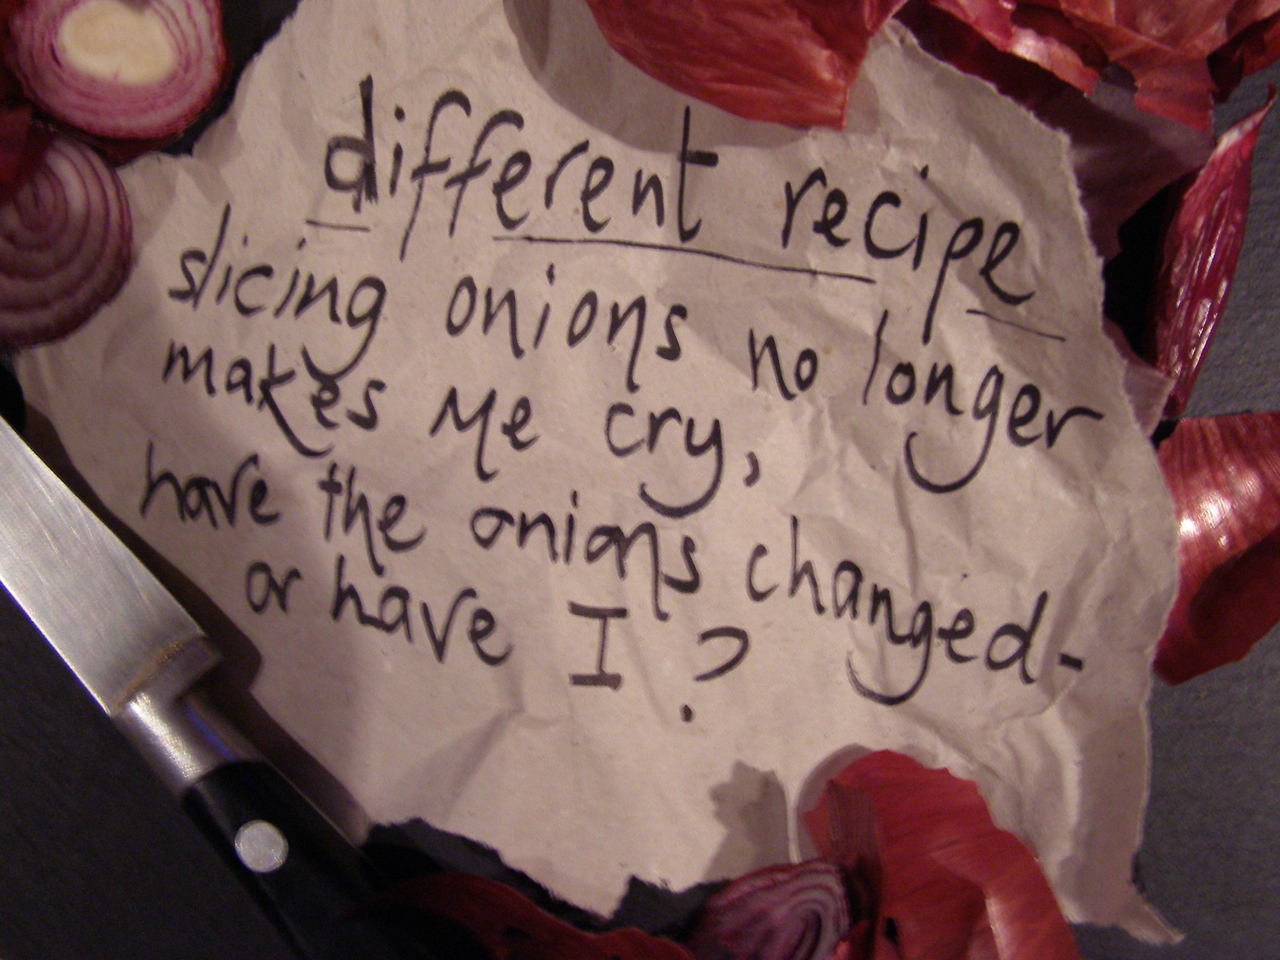 different recipe
slicing onions no longer
makes me cry,
have the onions changed-
or have I?